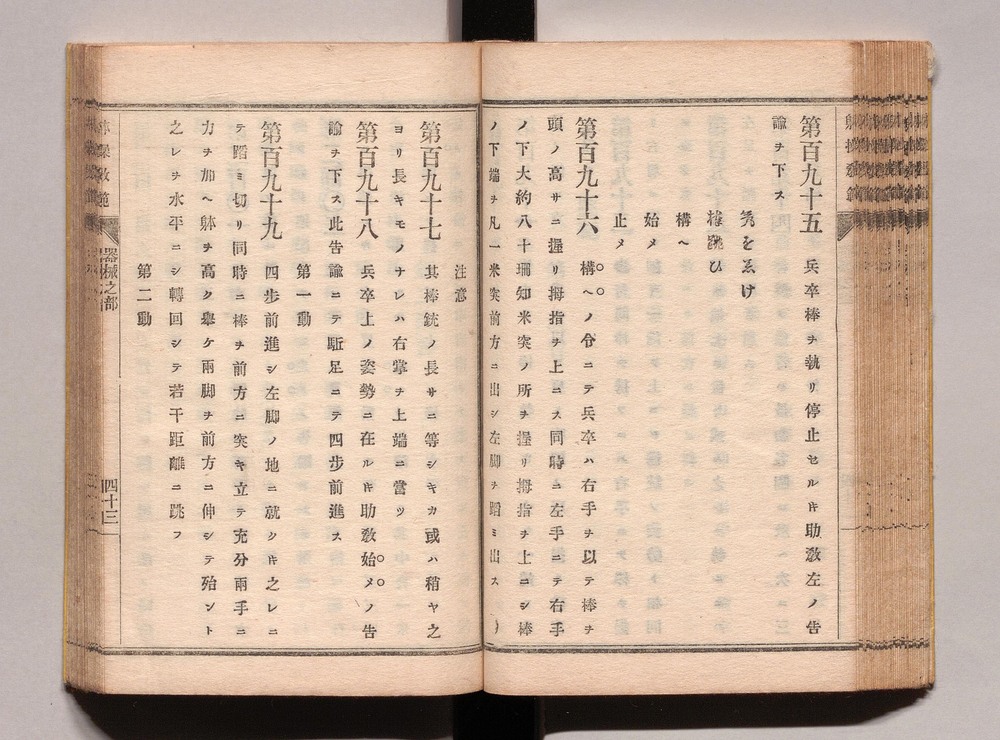 第百九十五 兵卒棒ヲ執リ停止セルキ助敎左ノ告
諭ヲ下ス
構跳ひ
構へ
始メ
止メ
第百九十六 構へノ令ニテ兵卒ハ右手ヲ以テ棒ヲ
頭ノ高サニ握リ拇指ヲ上ニス同時ニ左手ニテ右手
ノ下大約八十珊知米突ノ所ヲ握リ拇指ヲ上ニシ棒
ノ下端ヲ凡一米突前方ニ出シ左脚ヲ蹈ミ出ス
注意
第百九十七 其棒銃ノ長サニ等シキカ或ハ稍ヤ之
ヨリ長キモノナレハ右掌ヲ上端ニ當ツ
第百九十八 兵卒上ノ姿勢ニ在ルキ助敎始メノ告
諭ヲ下ス此告諭ニテ駈足ニテ四步前進ス
第一動
第百九十九 四步前進シ左脚ノ地ニ就クキ之レニ
テ蹈ミ切リ同時ニ棒ヲ前方ニ突キ立テ充分兩手ニ
力ヲ加ヘ躰ヲ高ク擧ケ兩脚ヲ前方ニ伸シテ殆ント
之レヲ水平ニシ轉回シテ若干距離ニ跳フ
第二動
器械之部
四十三